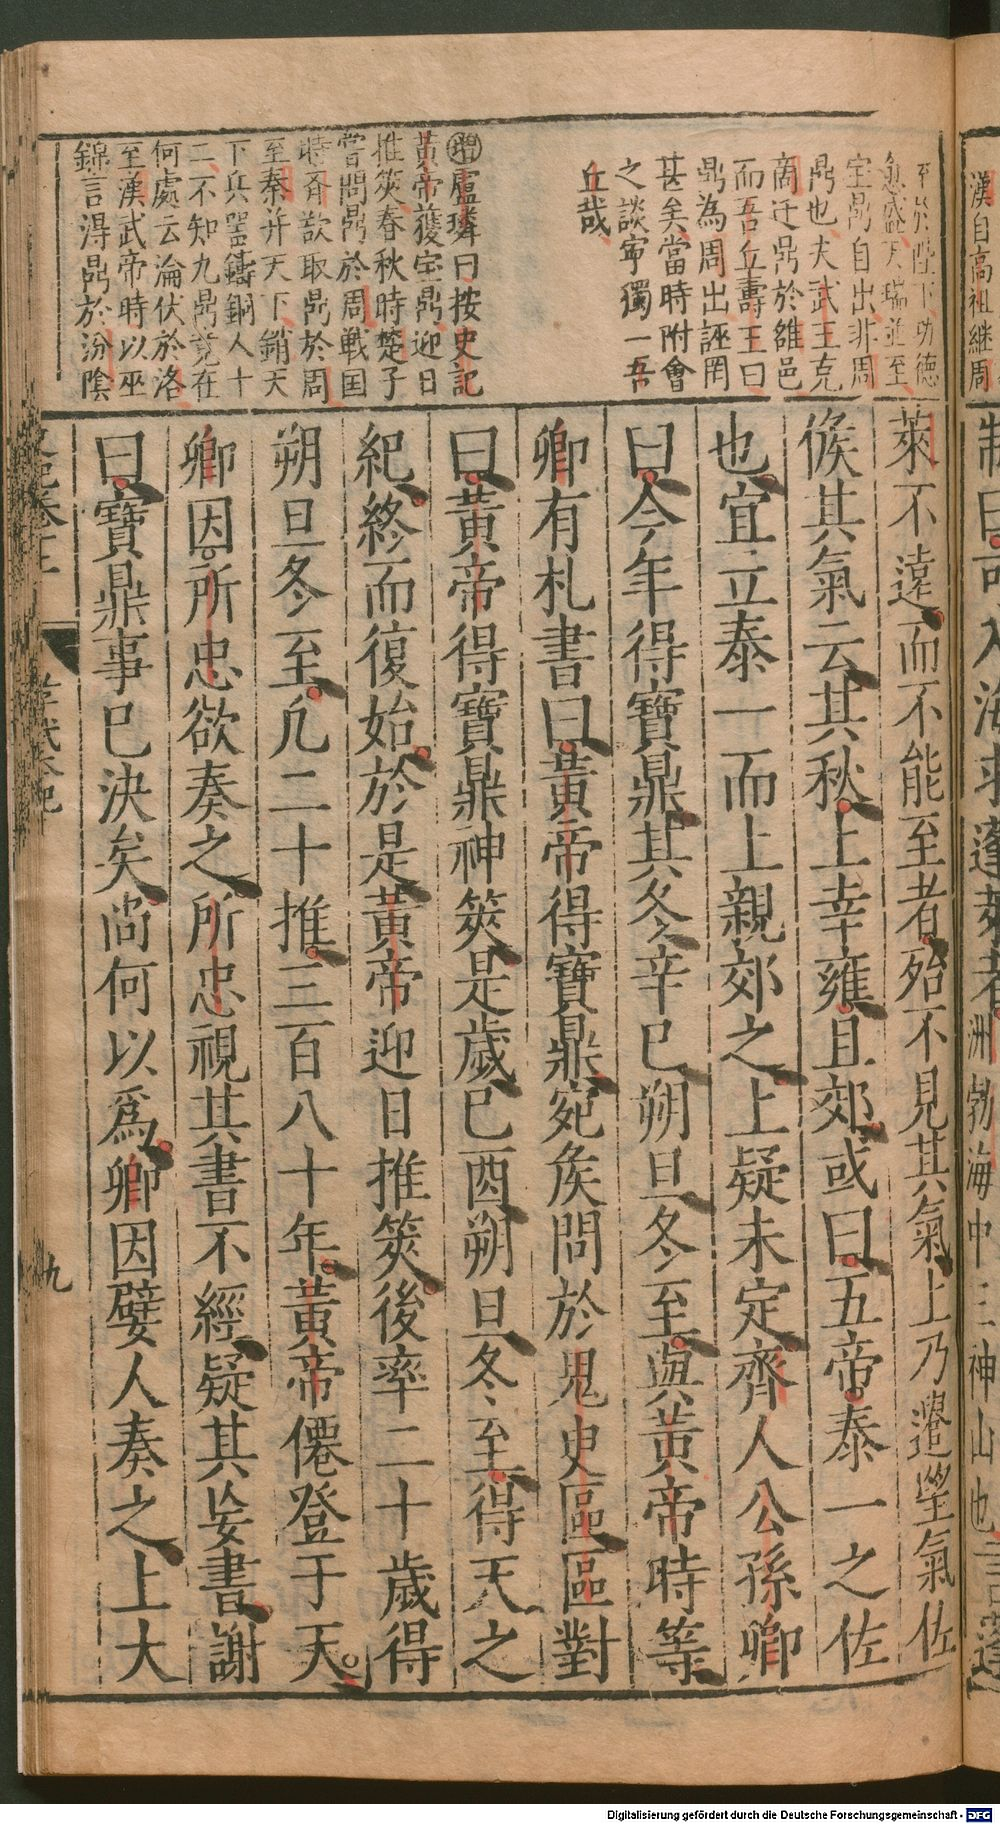 漢自高祖継周
至於陛下功德
愈盛天瑞並至
宝鼎自出非周
鼎也夫武王克
商迁鼎於雒邑
而吾丘壽王曰
鼎為周出誣罔
甚矣當時附會
之談寧獨一吾
丘哉
增盧璘曰按史記
黃帝獲宝鼎迎日
推筴春秋時楚子
嘗問鼎於周戦国
時斉欲取鼎於周
至秦并天下銷天
下兵噐鑄銅人十
二不知九鼎竟在
何處云淪伏於洛
至漢武帝時以巫
錦言淂鼎於汾陰
制曰可入海求蓬萊者洲勃海中三神山也言蓬
萊不遠而不能至者殆不見其氣上乃遣望氣佐
候其氣云其秋上幸雍且郊或曰五帝泰一之佐
也宜立泰一而上親郊之上疑未定齊人公孫卿
曰今年得寶鼎其冬辛巳朔旦冬至與黃帝時等
卿有札書曰黃帝得寶鼎宛侯問於鬼臾區區對
曰黃帝得寶鼎神筴是歲己酉朔旦冬至得天之
紀終而復始於是黃帝迎日推筴後率二十歲得
朔旦冬至凢二十推三百八十年黃帝僊登于天
卿因所忠欲奏之所忠視其書不經疑其妄書謝
曰寶鼎事已決矣尚何以爲卿因嬖人奏之上大
九
Digitalisierung gefördert durch die Deutsche Forschungsgemeinschaft - DFG